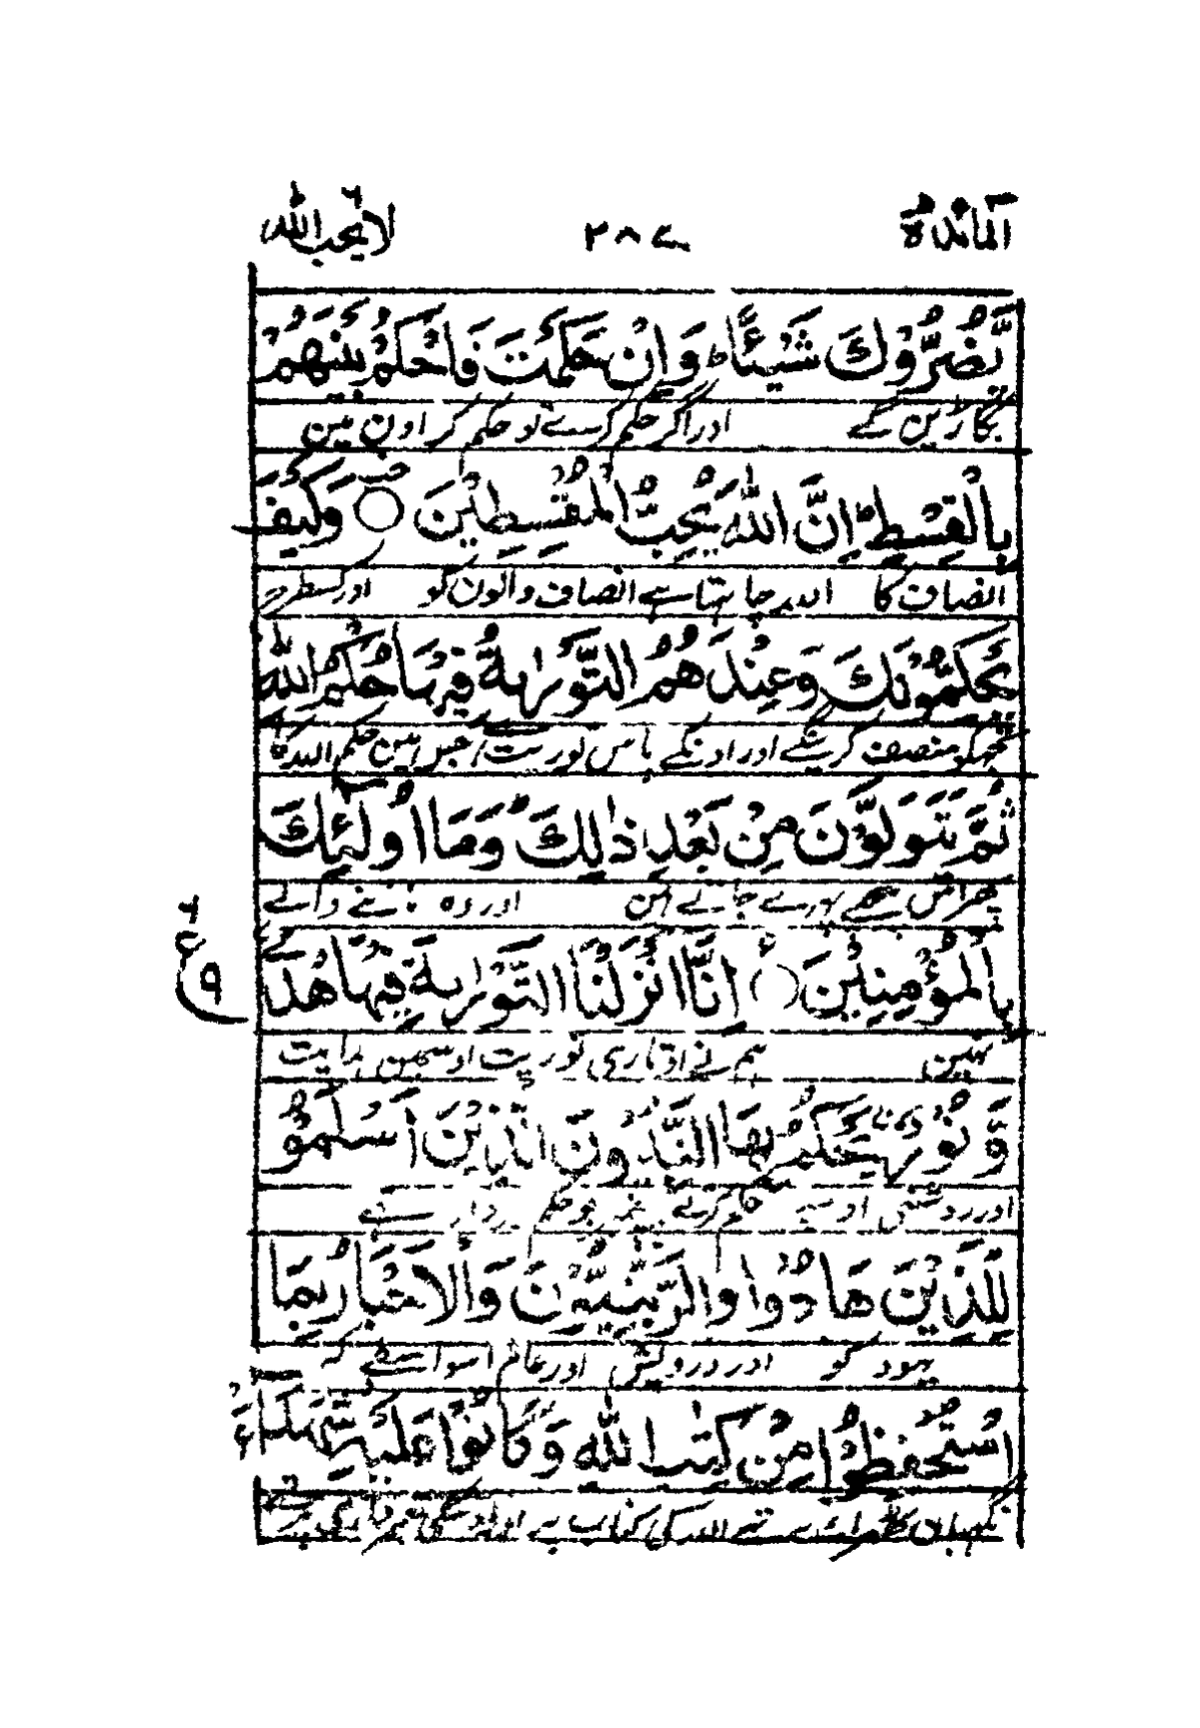 المائدة ٢٨٧ لا يحب الله ٦
يَّضُرُّوْكَ شَيْـًٔا ؕ وَاِنْ حَكَمْتَ فَاحْكُمْ بَيْنَهُمْ
بگاڑین گے اور اگر حکم کرے تو حکم کر اون مین
بِالْقِسْطِ ؕ اِنَّ اللّٰهَ يُحِبُّ الْمُقْسِطِيْنَ ○ وَكَيْفَ
انصاف کا اللہ چاہتا ہے انصاف والون کو اور کسطرح
يُحَكِّمُوْنَكَ وَعِنْدَهُمُ التَّوْرٰىةُ فِيْهَا حُكْمُ اللّٰهِ
تجہکو منصف کرینگے اور اونکے پاس توریت جس مین حکم اللہ کا
ثُمَّ يَتَوَلَّوْنَ مِنْۢ بَعْدِ ذٰلِكَ ؕ وَمَآ اُولٰٓئِكَ
پھر اس پیچھے پھرے جاتے ہین اور وہ ماننے والے
بِالْمُؤْمِنِيْنَ ○ اِنَّآ اَنْزَلْنَا التَّوْرٰىةَ فِيْهَا هُدًى
ع ٩
نہین ہم نے اوتاری توریت اوسمین ہدایت
وَّنُوْرٌ ۚ يَحْكُمُ بِهَا النَّبِيُّوْنَ الَّذِيْنَ اَسْلَمُوْا
اور روشنی اوس حکم کرتے پیغمبر جو حکم بردار تھے
لِلَّذِيْنَ هَادُوْا وَالرَّبّٰنِيُّوْنَ وَالْاَحْبَارُ بِمَا
یہود کو اور درویش اور عالم اسواسطے کہ
اسْتُحْفِظُوْا مِنْ كِتٰبِ اللّٰهِ وَكَانُوْا عَلَيْهِ شُهَدَآءَ
نگہبان ٹھہرائے تھے اللہ کی کتاب پے اور اوسکی خبرداری پر تھے